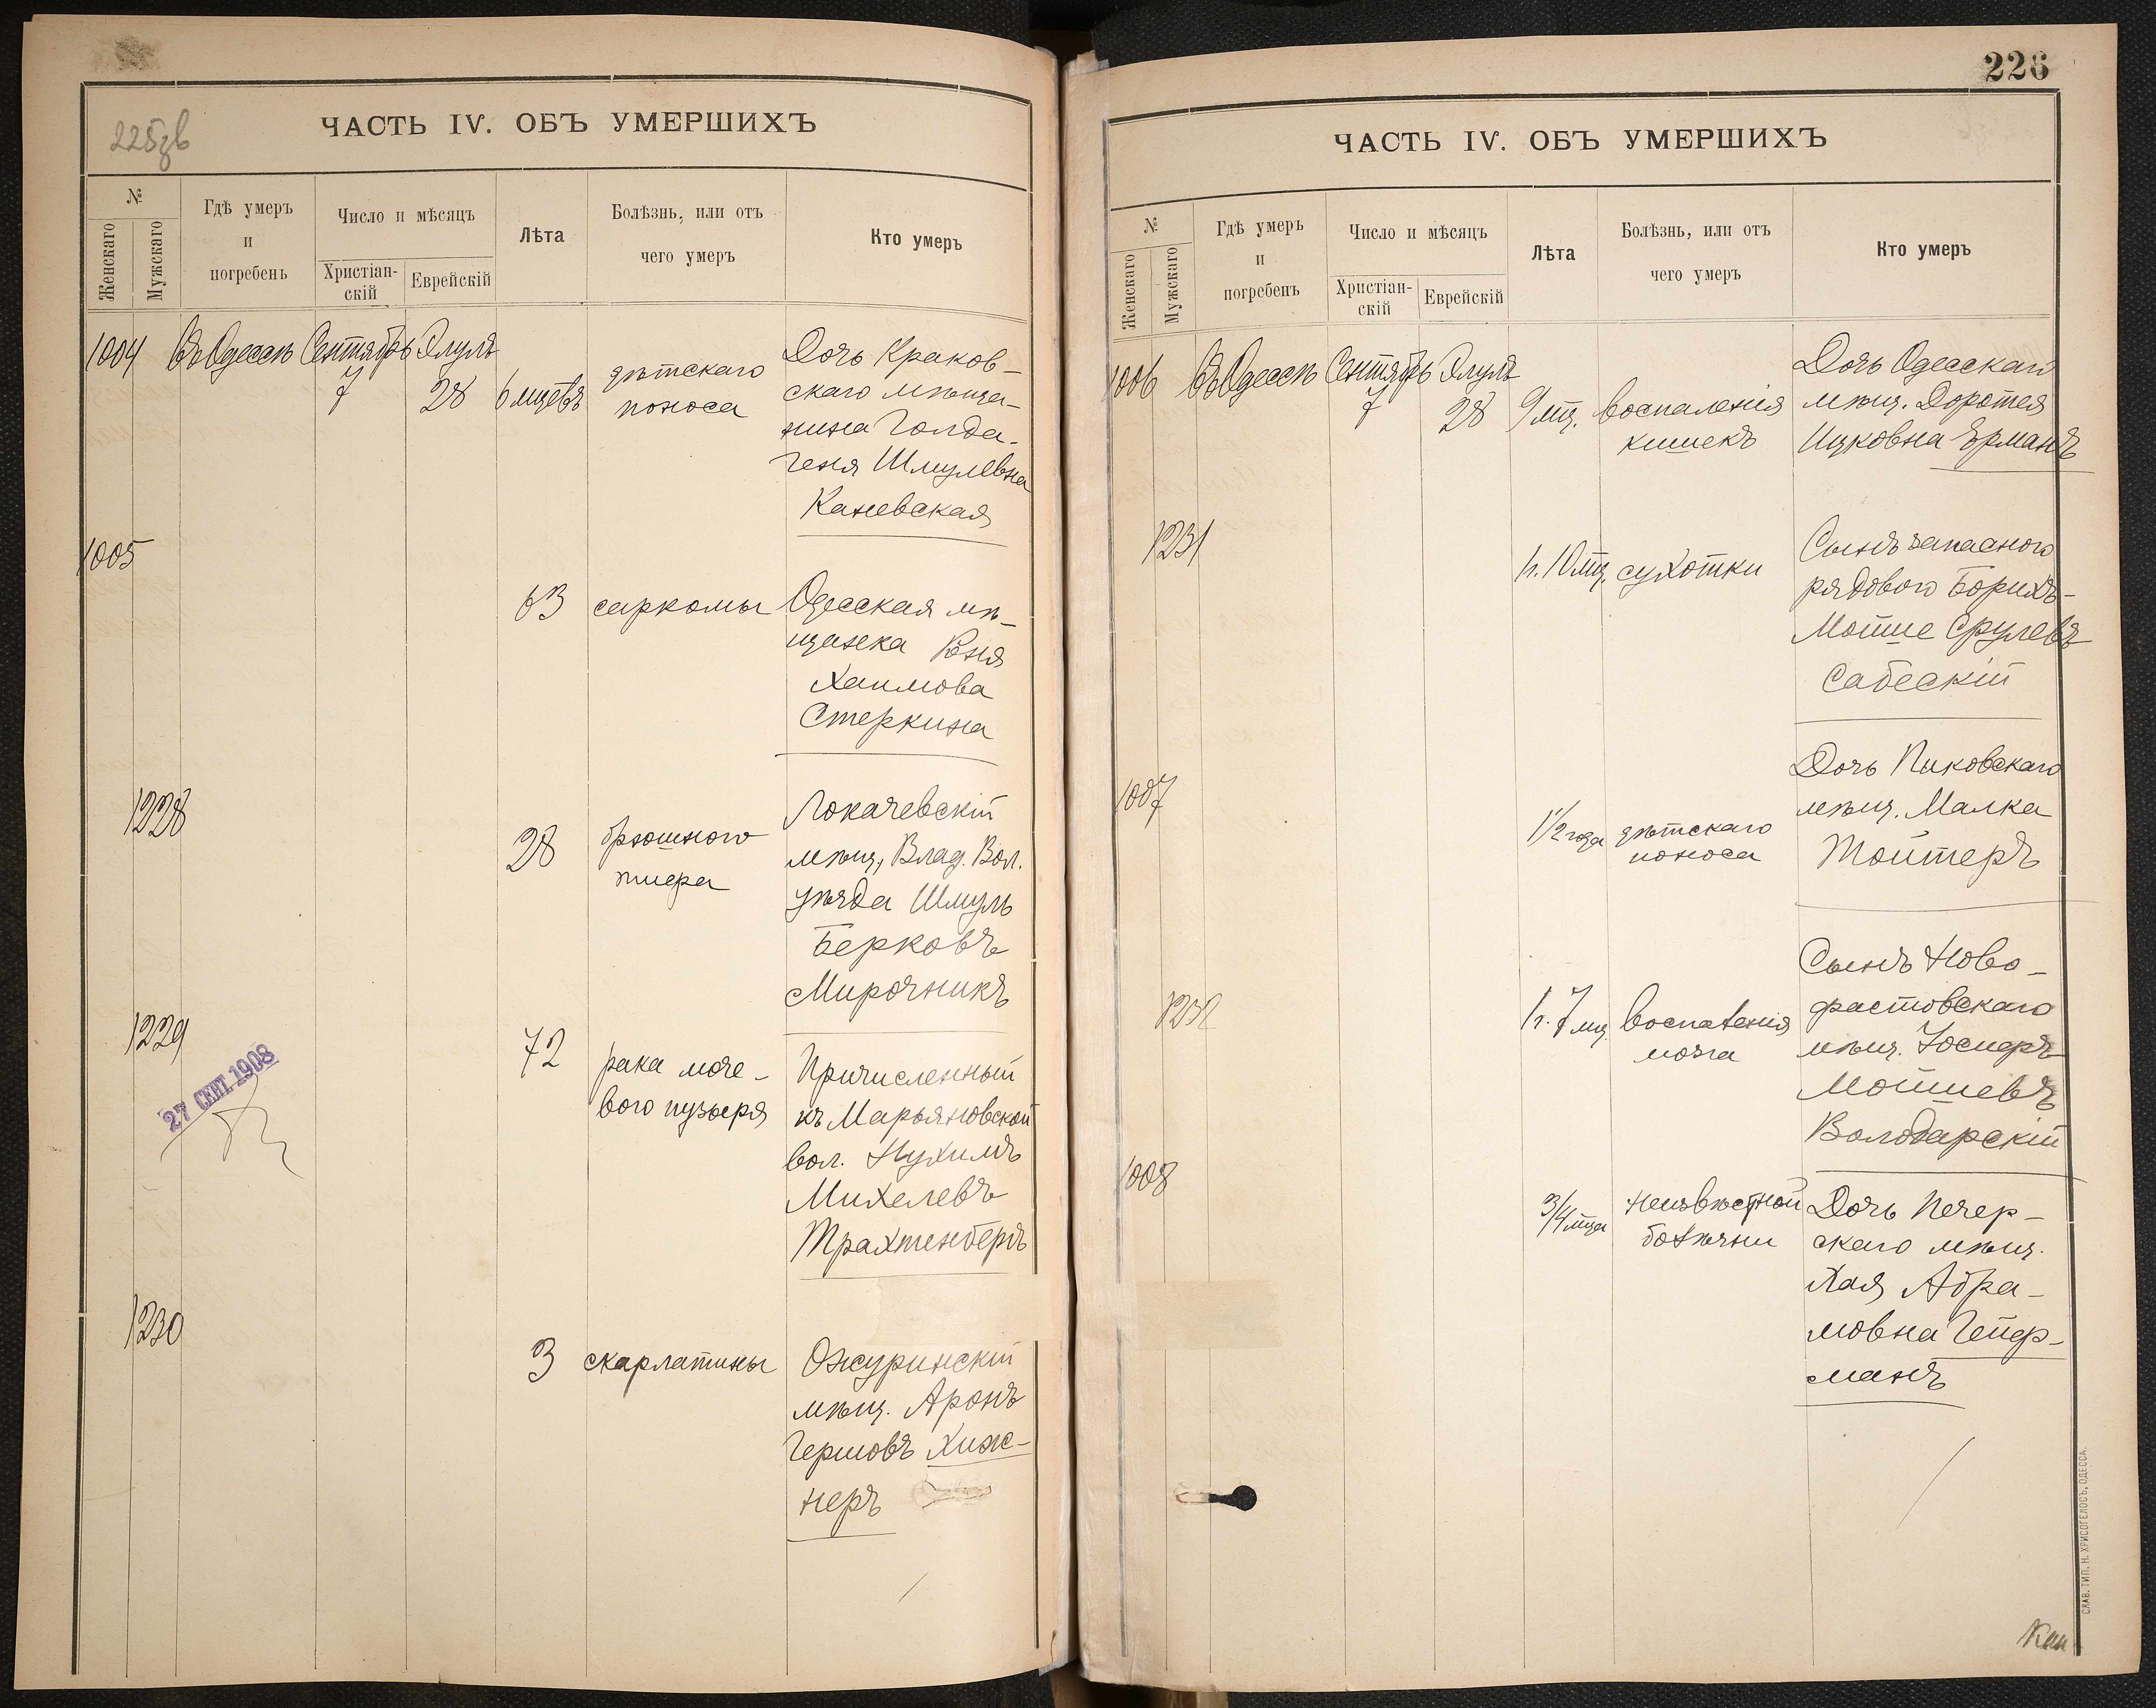 225зв
ЧАСТЬ IV. ОБЪ УМЕРШИХЪ
№
Женскаго
Мужскаго
Гдѣ умеръ
и
погребенъ
Число и мѣсяцъ
Христіан-
скій
Еврейскій
Лѣта
Болѣзнь, или отъ
чего умеръ
Кто умеръ
1004
Въ Одессѣ
Сентябрь
7
Элулъ
28
6 мцевъ
дѣтскаго
поноса
Дочь Краков-
скаго мѣща-
нина Голда-
Геня Шмулевна
Каневская
1005
63
саркомы
Одесская мѣ-
щанка
Хаимова
Стеркина
1228
28
брюшного
тифа
Локачевскій
мѣщ., Влад. Вол.
уѣзда Шмуль
Берковъ
Мирочникъ
1229
27 СЕНТ 1908
72
рака моче-
вого пузыря
Причисленный
къ Марьяновской
вол. Нухимъ
Михелевъ
Трахтенбергъ
1230
3
скарлатины
Ожуринскій
мѣщ. Аронъ
Гершовъ Хиж-
неръ
226
ЧАСТЬ IV. ОБЪ УМЕРШИХЪ
№
Женскаго
Мужскаго
Гдѣ умеръ
и
погребенъ
Число и мѣсяцъ
Христіан-
скій
Еврейскій
Лѣта
Болѣзнь, или отъ
чего умеръ
Кто умеръ
1006
Въ Одессѣ
Сентябрь
7
Элулъ
28
9 мц.
воспаленія
кишекъ
Дочь Одесскаго
мѣщ. Доротея
Ицковна Эрманъ
1231
1 г. 10 мц.
сухотки
Сынъ запасного
рядового Борихъ-
Мойше Срулевъ
Сабескій
1007
1 1/2 года
дѣтскаго
поноса
Дочь Пиковскаго
мѣщ. Малка
Тойтеръ
1232
1 г. 7 мц.
воспаленія
мозга
Сынъ Ново-
фастовскаго
мѣщ. Іосифъ
Мойшевъ
Володарскій
1008
3/4 мца
неизвѣстной
болѣзни
Дочь Печер-
скаго мѣщ.
Хая Абра-
мовна Гейф-
манъ
СЛАВ. ТИП. Н. ХРИСОГЕЛОСЪ, ОДЕССА.